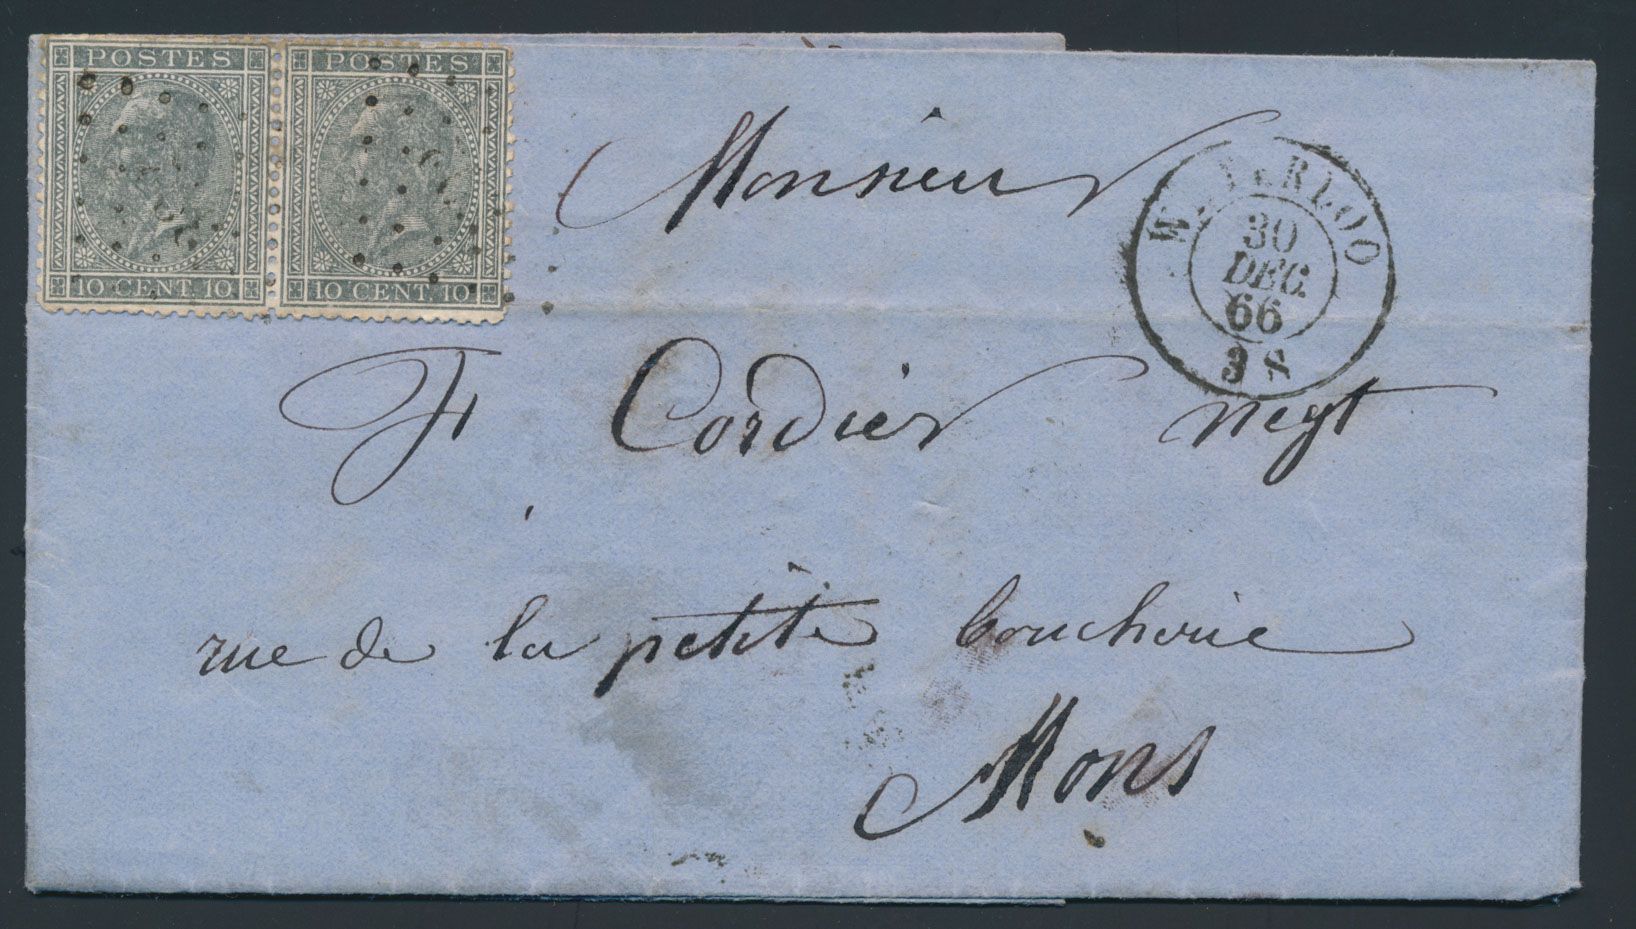 POSTES POSTES
10 CENT. 10 10 CENT. 10
WATERLOO
30
DEC.
66
3 S
Monsieur
F Cordier negt
à
rue de la petite boucherie
Mons